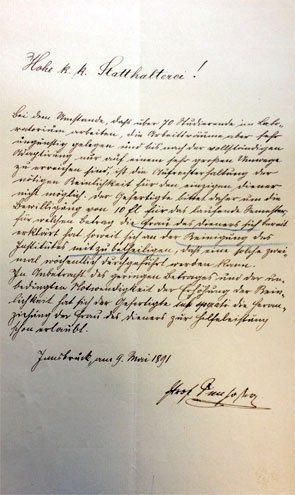 Hohe k. k. Statthalterei!
Bei dem Umstande, daß über 70 Studierende im Labo-
ratorium arbeiten, die Arbeitsräume aber sehr
ungünstig gelegen und bis nach der vollständigen
nur auf einem sehr großen Umwege
zu erreichen sind, ist die Aufrechterhaltung der
nötigen Reinlichkeit für den einzigen Diener
nicht möglich. Der Gefertigte bittet daher um die
Bewilligung von 10 fl für das laufende Semester,
für welchen Betrag die Frau des Dieners sich bereit
erklärt hat soweit sich an der Reinigung des
Institutes mitzubetheiligen, daß eine solche zwei-
mal wöchentlich durchgeführt werden kann.
In Anbetracht des geringen Betrages und der un-
bedingten Notwendigkeit der Erhöhung der Rein-
lichkeit hat sich der Gefertigte die Heran-
ziehung der Frau des Dieners zur Hilfeleistung
schon erlaubt.
Innsbruck, am 9. Mai 1891
Prof